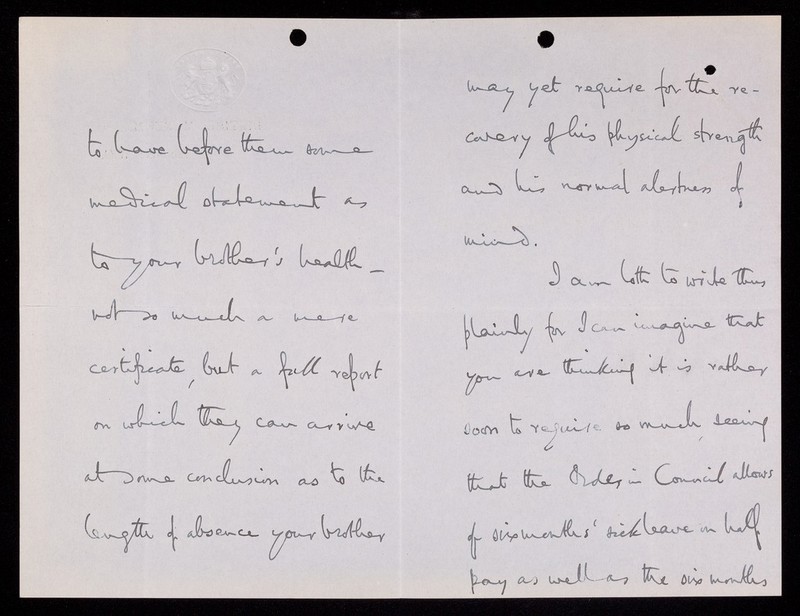 to have before them some
medical statement as
to your brother's health –
not so much a mere
certificate, but a full report
on which they can arrive
at some conclusion as to the
length of absence your brother
may yet require for the re-
covery of his physical strength
and his normal alertness of
mind.
I am loth to write thus
plainly for I can imagine that
you are thinking it is rather
soon to require so much, seeing
that the Order in Council allows
of six months' sick leave on half
pay as well as the six months